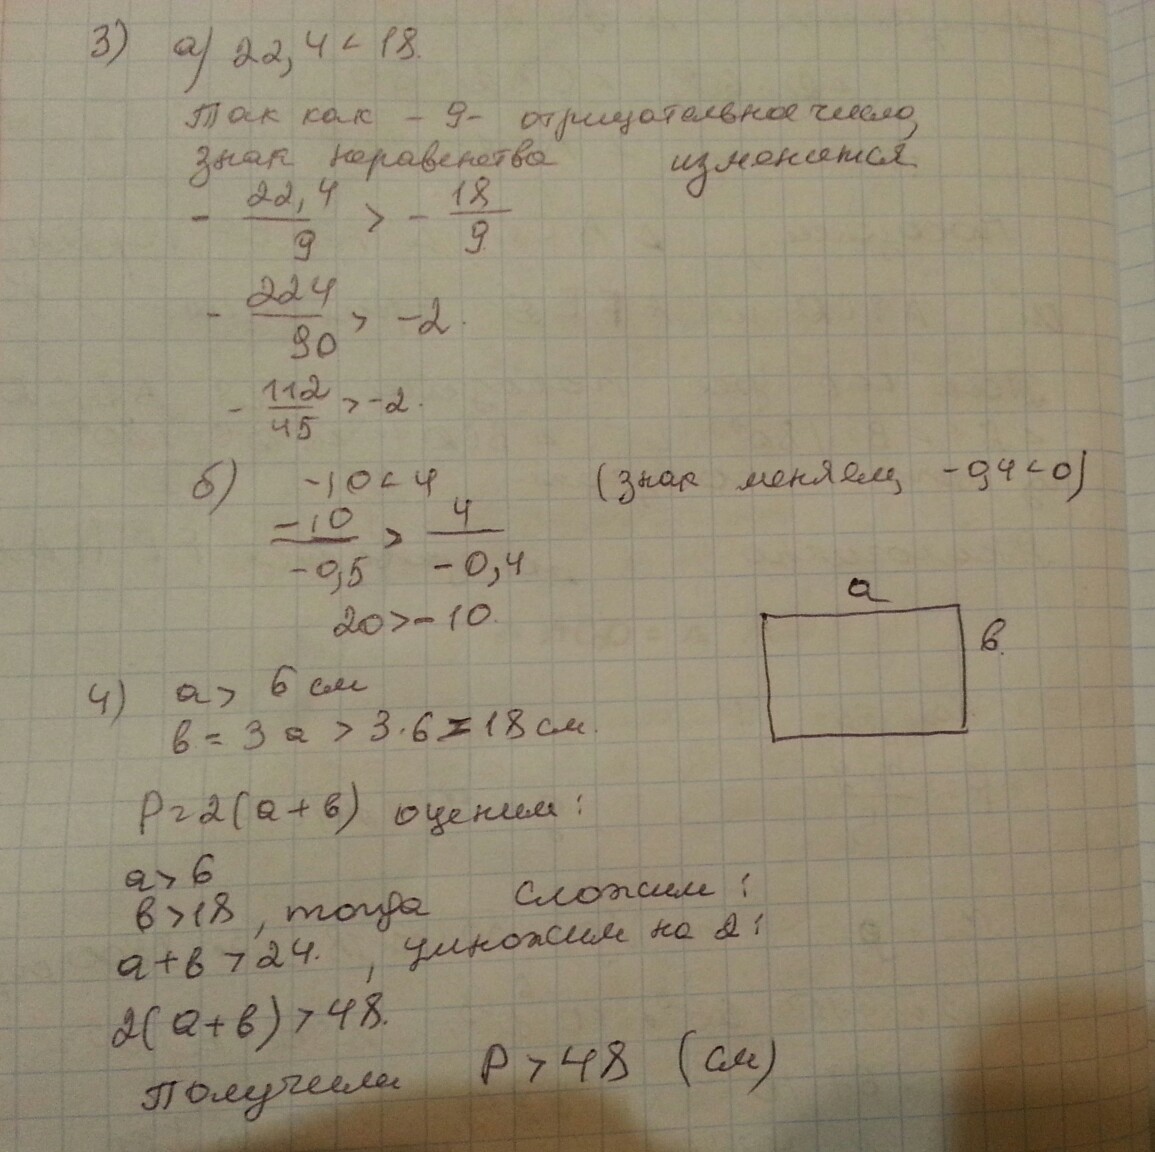 3) а) 22,4 < 18.
Так как -9- отрицательное число,
знак неравенства изменится
- 22,4/9 > - 18/9
- 224/90 > -2.
- 112/45 > -2.
б) -10 < 4 (знак меняем, -0,4 < 0)
-10/-0,5 > 4/-0,4
20 > -10.
a
в.
4) a > 6 см
в = 3a > 3·6 = 18 см.
P = 2(a+в) оценим:
a > 6
в > 18, тогда сложим:
a+в > 24. , умножим на 2:
2(a+в) > 48.
Получили P > 48 (см)